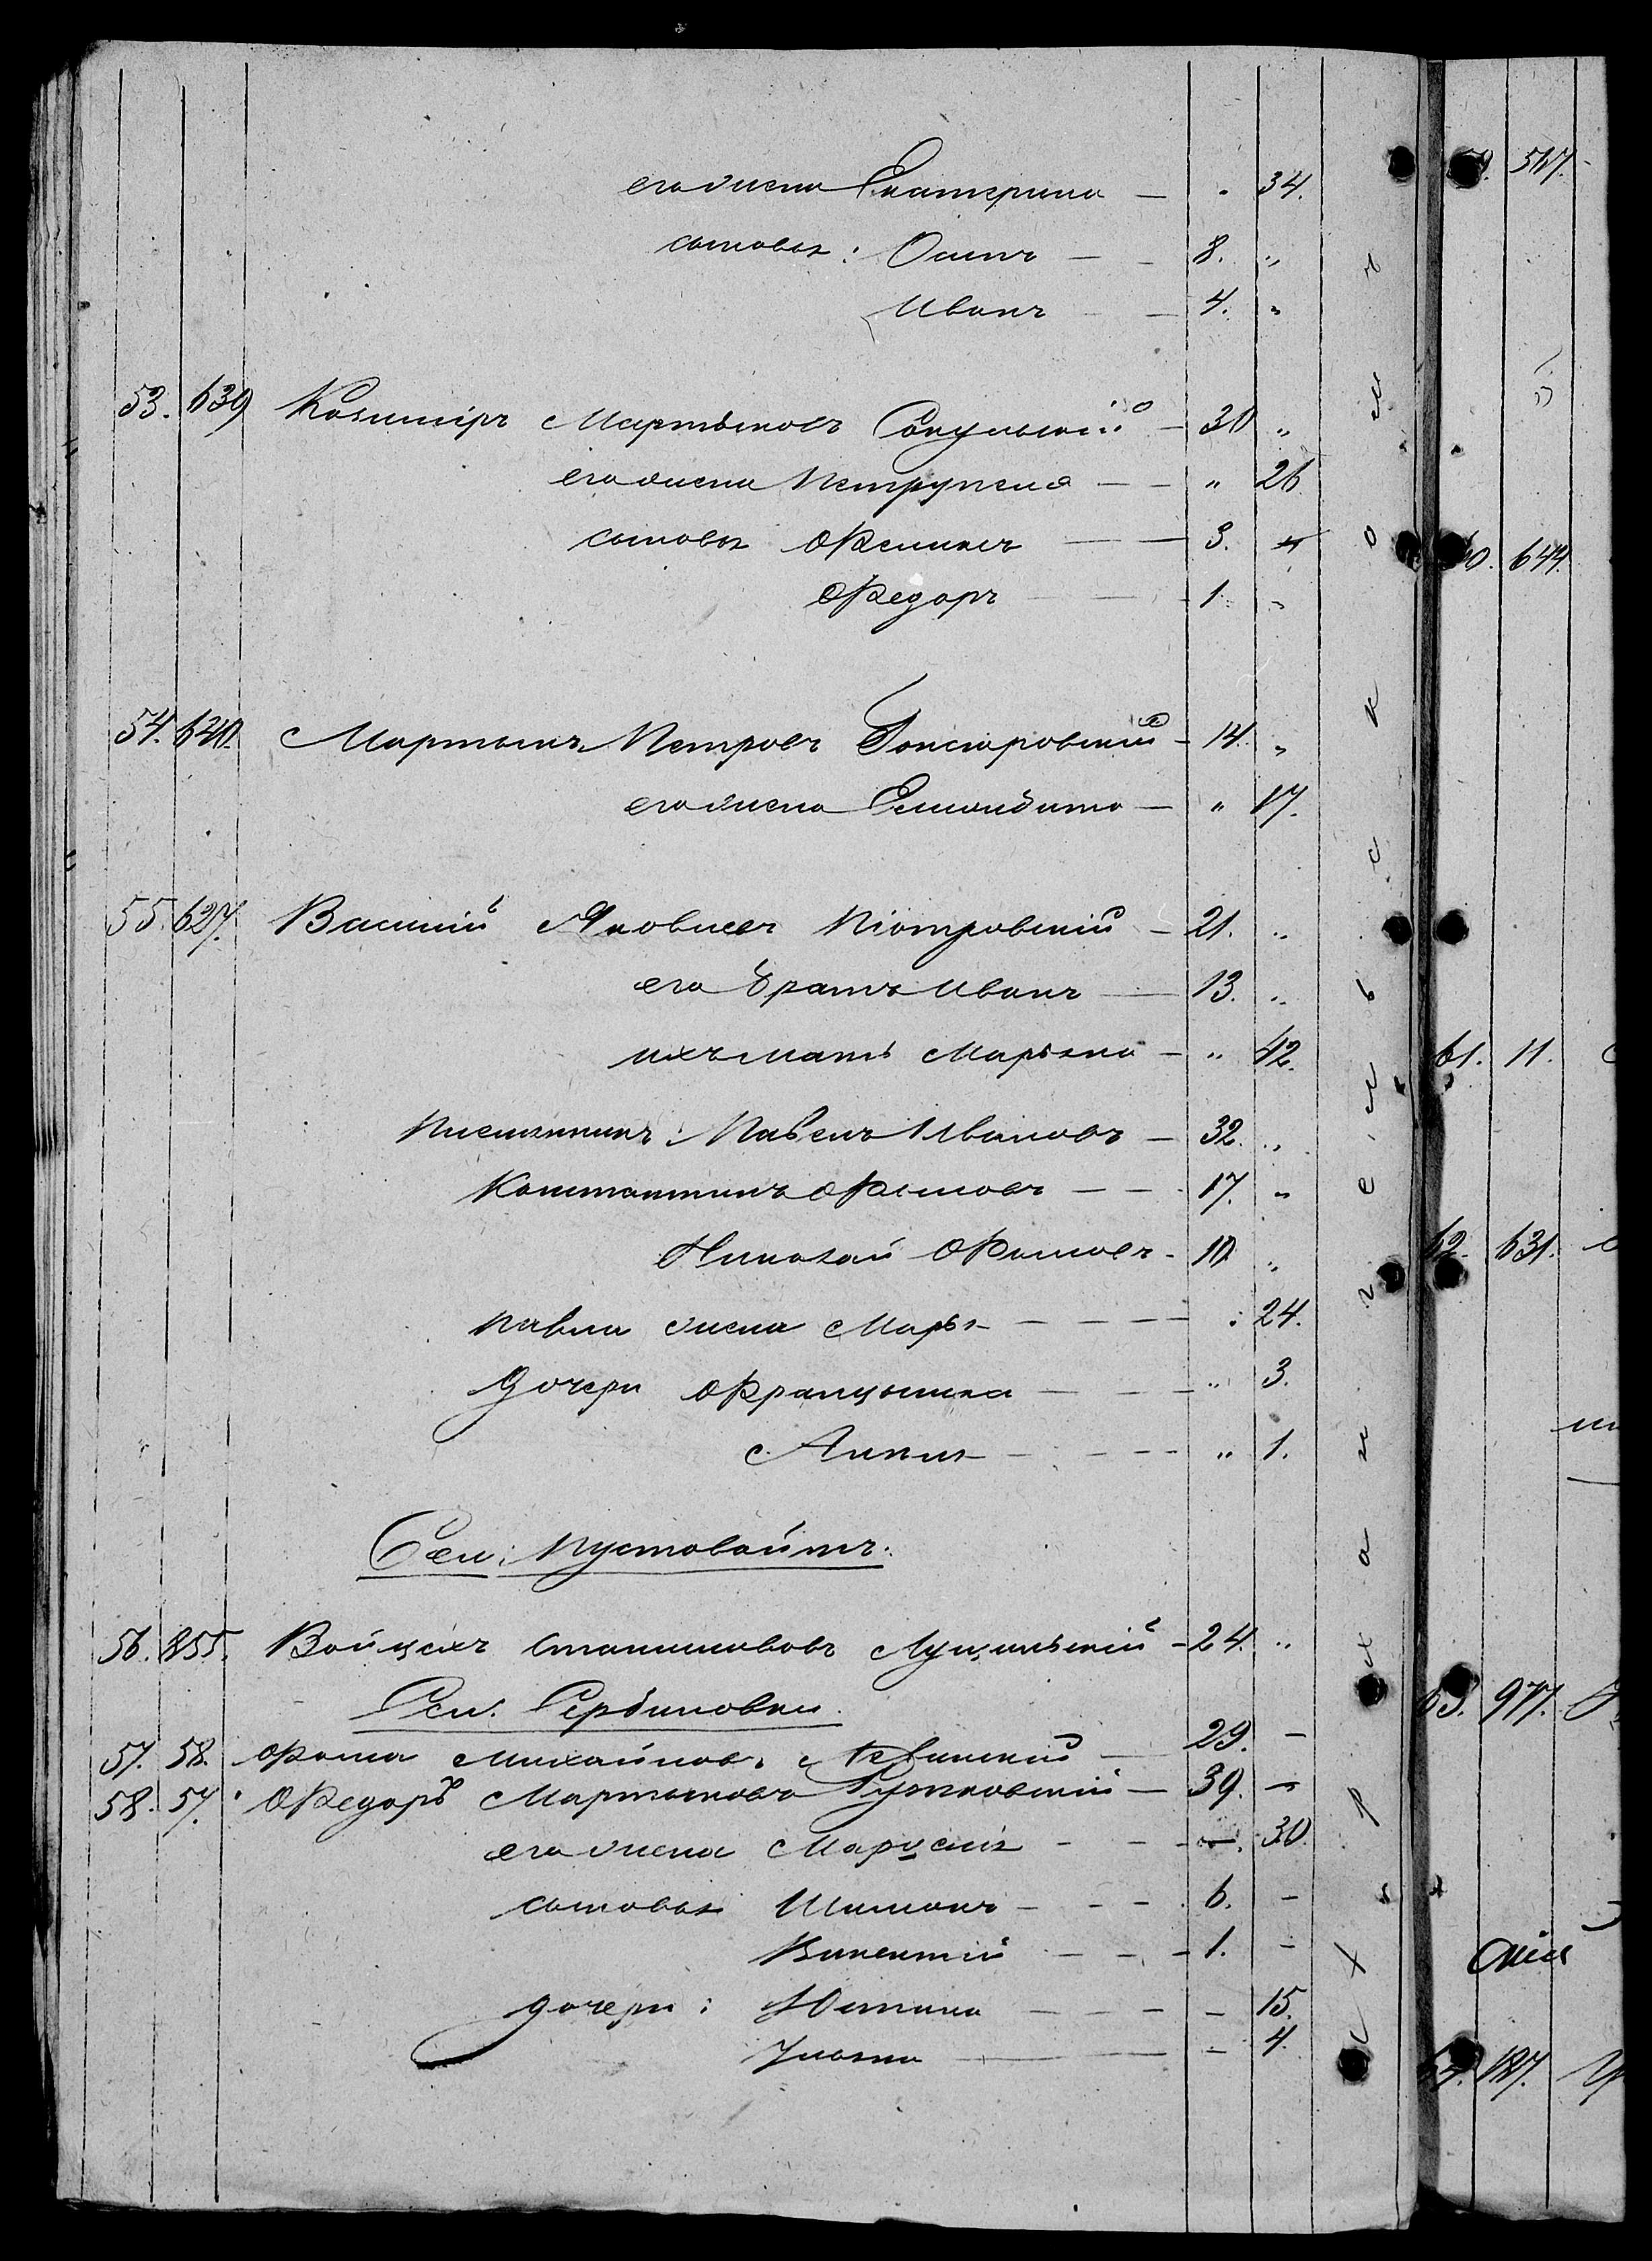 его жена Екатерина — . 34.
сыновья: Осипъ — 8. "
Иванъ — 4. "
53. 639 Казимиръ Мартыновъ Сокульскій — 30 "
его жена Петрунеля — " 26
сыновья Феликсъ — 3. "
Федоръ — 1. "
54. 640. Мартынъ Петровъ Гонсіоровскій — 14. "
его жена — " 17.
55. 627. Василій Яковлевъ Піотровскій — 21. "
его братъ Иванъ — 13. "
ихъ мать Марьяна — " 42.
Племянникъ: Павелъ Ивановъ — 32. "
Константинъ Фоминовъ — 17. "
Николай Фоминовъ — 10 "
Павла жена Марья — " 24.
Дочери Францишка — " 3.
Анна — " 1.
Сел: Пустовойтъ.
56. 855. Войцехъ Станиславовъ — 24. "
Сел. Сербиновки.
57. 58. Фома Михайловъ — 29. —
58. 57. Федоръ Мартыновъ Рутковскій — 39. —
его жена — — 30.
сыновья Шимонъ — 6. —
Викентій — 1. —
дочери: Юстина — — 15.
Ульяна — — 4.
Х р х а н г е л ь с к о м ъ
517.
60. 644.
61. 11.
62. 631.
63. 977.
187.